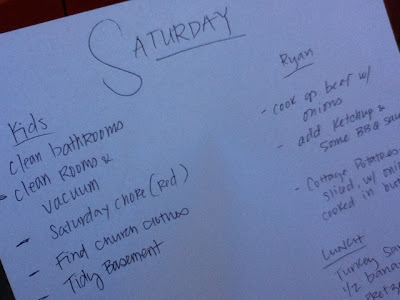 SATURDAY
Kids
clean bathrooms
- clean rooms &
vacuum
- Saturday chore (Rod)
- Find church clothes
- Tidy Basement
Ryan
- cook gr. beef w/
onions
- add ketchup &
some BBQ
- Cottage Potatoes-
sliced, w/
cooked in
LUNCH
Turkey
1/2